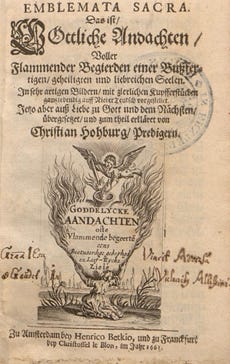 EMBLEMATA SACRA.
Das ist/
Göttliche Andachten/
Voller
Flammender Begierden einer Bußfer-
tigen/ geheiligten und liebreichen Seelen
In sehr artigen Bildern/ mit zierlichen Kupfferstücken
auff Nieder Teutsch vorgestellet.
Jetzo aber auß Liebe zu Gott und dem Nächsten/
übergesetzet/ und zum theil erkläret von
Christian Hohburg/ Predigern.
GODDELYCKE
AANDACHTEN
ofte
Vlammende begeerte
eens
Boetvaerdige geheyligde
en Lief-Rycke
Ziele
Zu Amsterdam bey Henrico Betkio, und zu Franckfurt
bey Christoffel le Blon, im Jahr